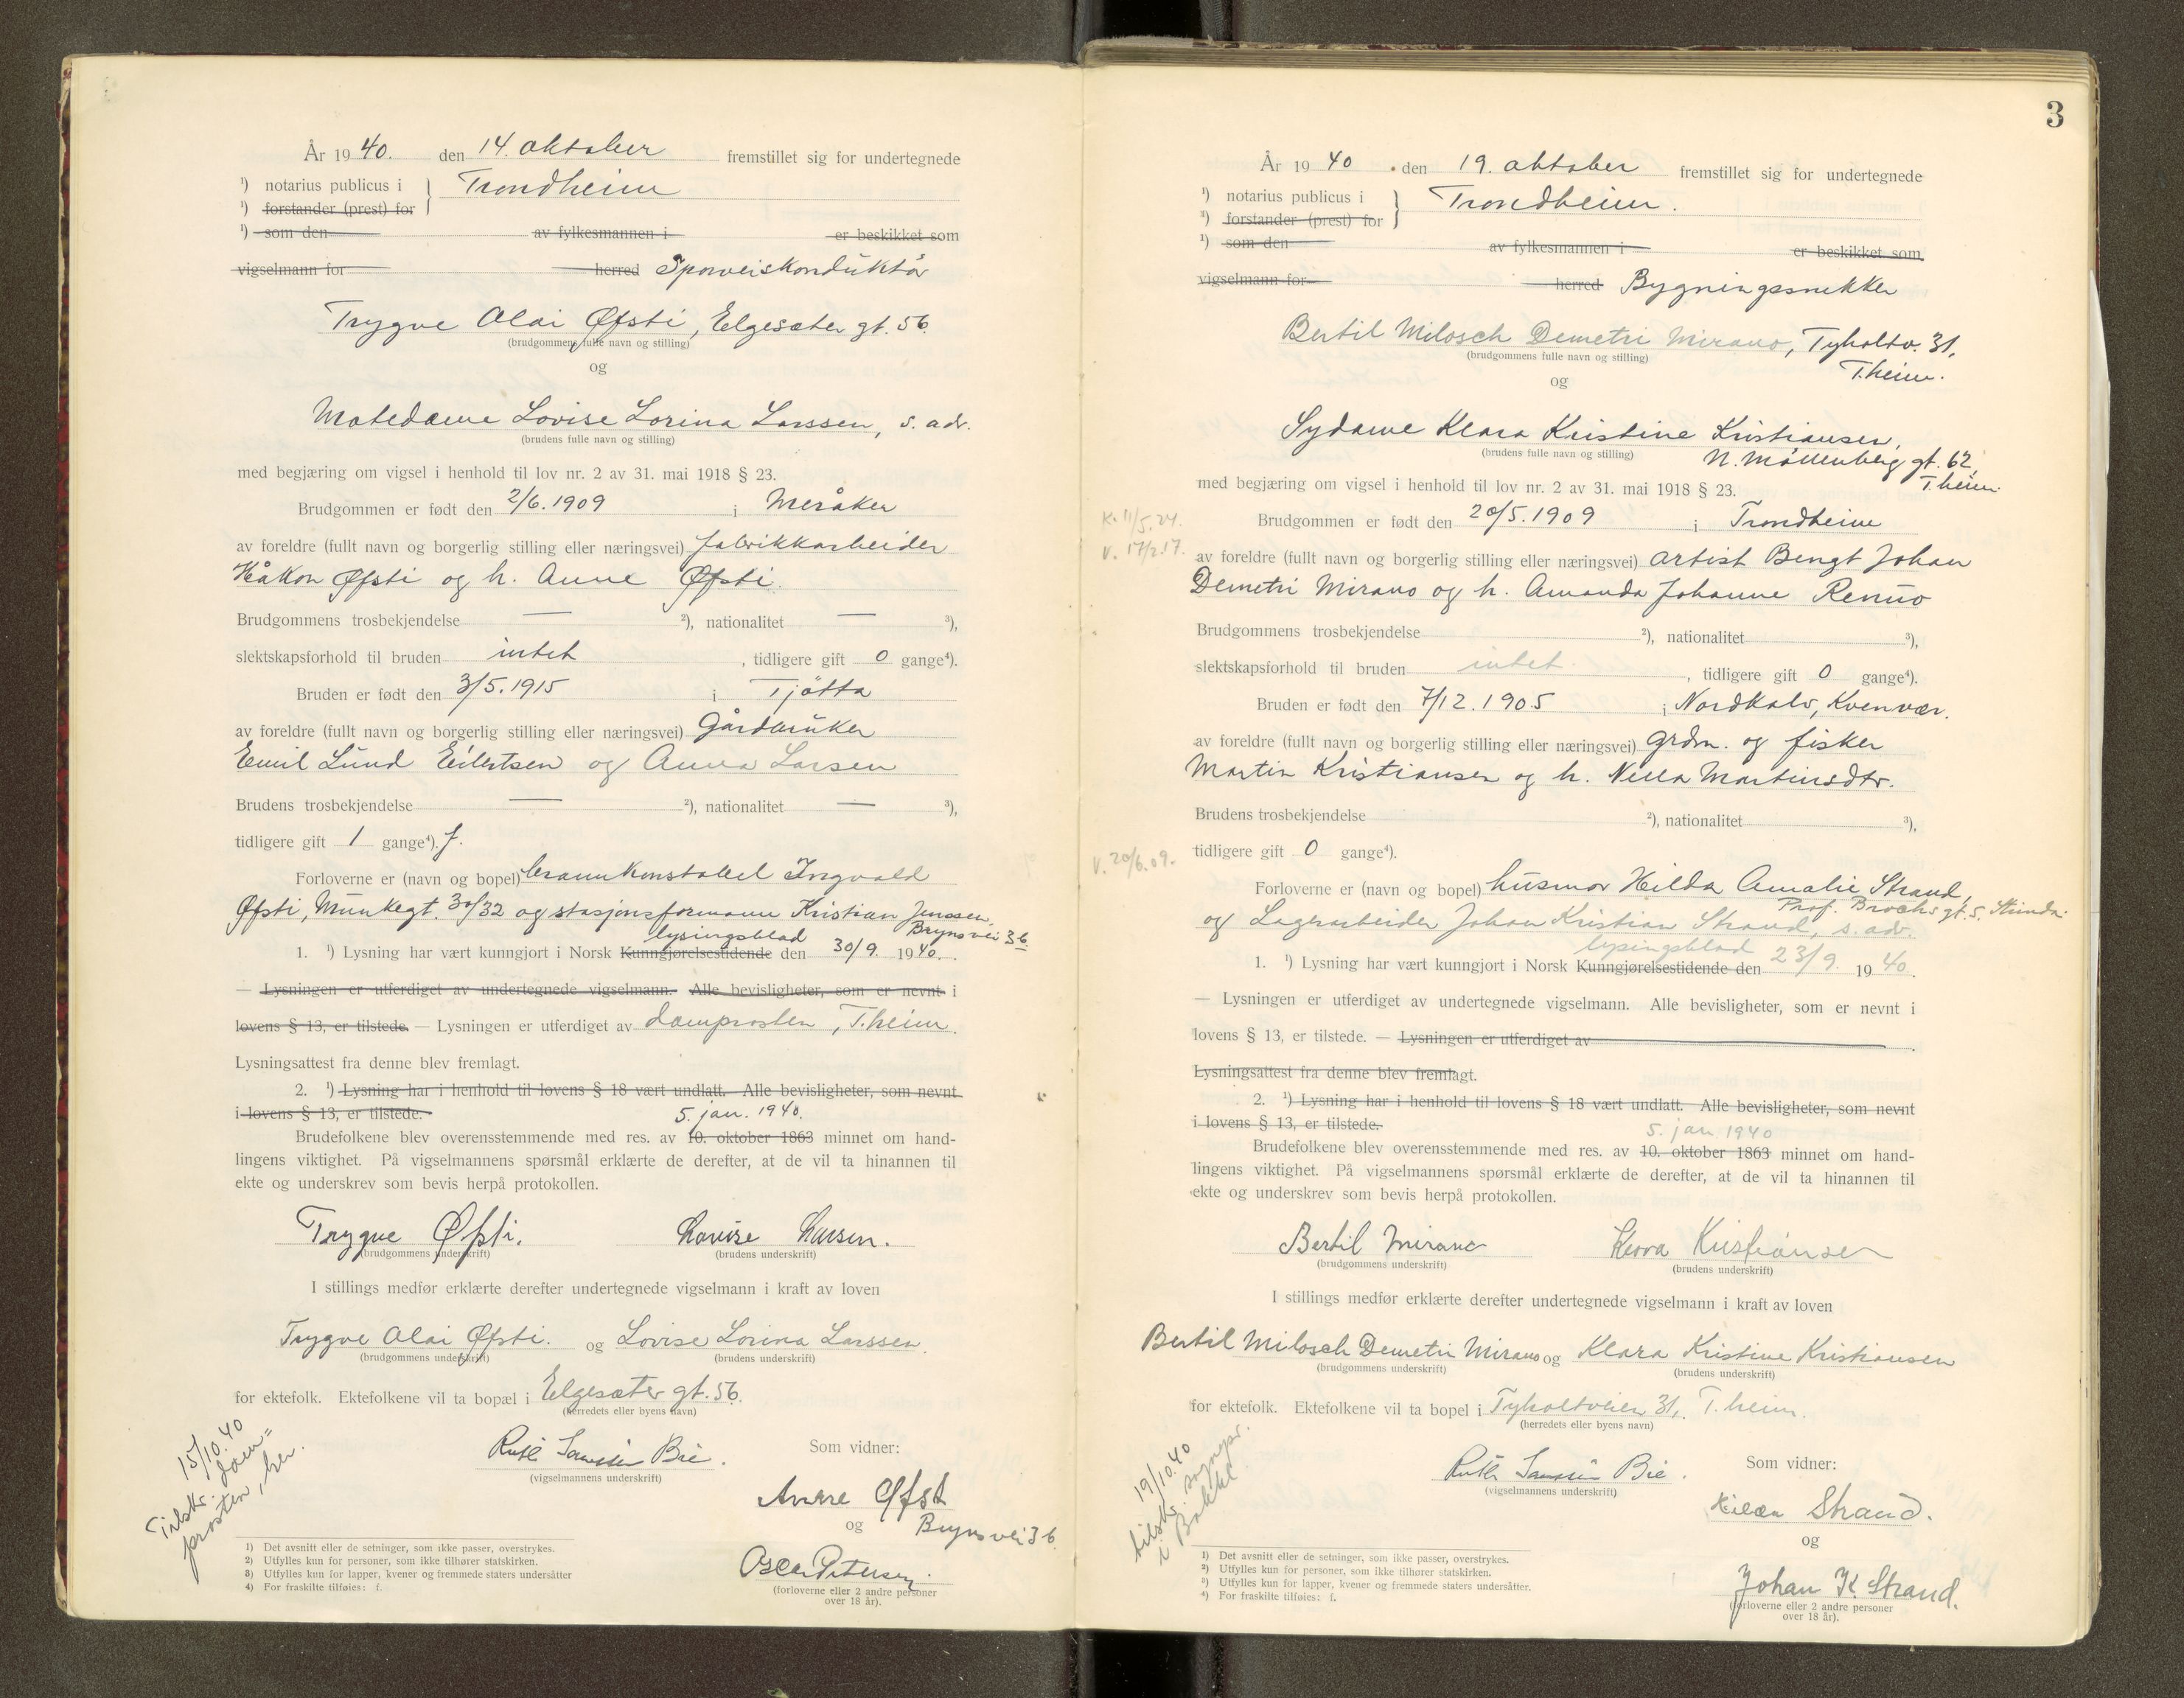 År 1940. den 14. oktober fremstillet sig for undertegnede
¹) notarius publicus i } Trondheim
¹) forstander (prest) for
¹) som den av fylkesmannen i er beskikket som
vigselmann for herred Sporveiskonduktør
Trygve Olai Øfsti, Elgesæter gt. 56.
(brudgommens fulle navn og stilling)
og
Matedame Lovise Lorina Larssen, s. adr.
(brudens fulle navn og stilling)
med begjæring om vigsel i henhold til lov nr. 2 av 31. mai 1918 § 23.
Brudgommen er født den 2/6.1909 i Meråker
av foreldre (fullt navn og borgerlig stilling eller næringsvei) fabrikkarbeider
Håkon Øfsti og h. Anne Øfsti.
Brudgommens trosbekjendelse — ²), nationalitet — ³),
slektskapsforhold til bruden intet, tidligere gift 0 gange⁴).
Bruden er født den 3/5.1915 i Tjøtta
av foreldre (fullt navn og borgerlig stilling eller næringsvei) Gårdbruker
Emil Lund Eilertsen og Anna Larsen
Brudens trosbekjendelse — ²), nationalitet — ³),
tidligere gift 1 gange⁴). f.
Forloverne er (navn og bopel) brannkonstabel Ingvald
Øfsti, Munkegt. 30/32 og stasjonsformann Kristian Jenssen,
Bryns vei 3b
lysingsblad
1. ¹) Lysning har vært kunngjort i Norsk Kunngjørelsestidende den 30/9. 1940.
— Lysningen er utferdiget av undertegnede vigselmann. Alle bevisligheter, som er nevnt i
lovens § 13, er tilstede. — Lysningen er utferdiget av domprosten, T.heim.
Lysningsattest fra denne blev fremlagt.
2. ¹) Lysning har i henhold til lovens § 18 vært undlatt. Alle bevisligheter, som nevnt
i lovens § 13, er tilstede.
5. jan. 1940.
Brudefolkene blev overensstemmende med res. av 10. oktober 1863 minnet om hand-
lingens viktighet. På vigselmannens spørsmål erklærte de derefter, at de vil ta hinannen til
ekte og underskrev som bevis herpå protokollen.
Trygve Øfsti. Lovise Larsen.
(brudgommens underskrift) (brudens underskrift)
I stillings medfør erklærte derefter undertegnede vigselmann i kraft av loven
Trygve Olai Øfsti. og Lovise Lorina Larssen
(brudgommens underskrift) (brudens underskrift)
for ektefolk. Ektefolkene vil ta bopæl i Elgesæter gt. 56.
(herredets eller byens navn)
15/10.40
Tilskr. dom=
prosten, her.
Ruth Bie.
(vigselmannens underskrift)
Som vidner:
Øfsti
og Bryns vei 3b.
Petersen
(forloverne eller 2 andre personer
over 18 år).
1) Det avsnitt eller de setninger, som ikke passer, overstrykes.
2) Utfylles kun for personer, som ikke tilhører statskirken.
3) Utfylles kun for lapper, kvener og fremmede staters undersåtter
4) For fraskilte tilføies: f.
3
År 1940 den 19. oktober fremstillet sig for undertegnede
¹) notarius publicus i } Trondheim.
¹) forstander (prest) for
¹) som den av fylkesmannen i er beskikket som
vigselmann for herred Bygningssnekker
Bertil Milosch Demetri Mirano, Tyholtv. 31,
T.heim.
(brudgommens fulle navn og stilling)
og
Sydame Klara Kristine Kristiansen,
(brudens fulle navn og stilling) N. Møllenberg gt. 62,
T.heim.
med begjæring om vigsel i henhold til lov nr. 2 av 31. mai 1918 § 23.
K. 11/5.24.
V. 17/2.17.
Brudgommen er født den 20/5.1909 i Trondheim
av foreldre (fullt navn og borgerlig stilling eller næringsvei) artist Bengt Johan
Demetri Mirano og h. Amanda Johanne Renno
Brudgommens trosbekjendelse ²), nationalitet ³),
slektskapsforhold til bruden intet, tidligere gift 0 gange⁴).
Bruden er født den 7/12.1905 i Nordkalv, Kvenvær.
av foreldre (fullt navn og borgerlig stilling eller næringsvei) grdm. og fisker
Martin Kristiansen og h. Nilla Martinsdtr.
Brudens trosbekjendelse ²), nationalitet ³),
V. 20/6.09.
tidligere gift 0 gange⁴).
Forloverne er (navn og bopel) husmor Hilda Amalie Strand,
Prof. Brochs gt. 5, Strinda.
og Lagerarbeider Johan Kristian Strand, s. adr.
lysingsblad
1. ¹) Lysning har vært kunngjort i Norsk Kunngjørelsestidende den 23/9. 1940.
— Lysningen er utferdiget av undertegnede vigselmann. Alle bevisligheter, som er nevnt i
lovens § 13, er tilstede. — Lysningen er utferdiget av
Lysningsattest fra denne blev fremlagt.
2. ¹) Lysning har i henhold til lovens § 18 vært undlatt. Alle bevisligheter, som nevnt
i lovens § 13, er tilstede.
5. jan 1940
Brudefolkene blev overensstemmende med res. av 10. oktober 1863 minnet om hand-
lingens viktighet. På vigselmannens spørsmål erklærte de derefter, at de vil ta hinannen til
ekte og underskrev som bevis herpå protokollen.
Bertil Mirano Klara Kristiansen
(brudgommens underskrift) (brudens underskrift)
I stillings medfør erklærte derefter undertegnede vigselmann i kraft av loven
Bertil Milosch Demetri Mirano og Klara Kristine Kristiansen
(brudgommens underskrift) (brudens underskrift)
for ektefolk. Ektefolkene vil ta bopel i Tyholtveien 31, T.heim.
(herredets eller byens navn)
19/10.40
tilskr. sognepr.
i Bakke.
Ruth Bie.
(vigselmannens underskrift)
Som vidner:
Hilda Strand.
og
Johan K. Strand.
(forloverne eller 2 andre personer
over 18 år).
1) Det avsnitt eller de setninger, som ikke passer, overstrykes.
2) Utfylles kun for personer, som ikke tilhører statskirken.
3) Utfylles kun for lapper, kvener og fremmede staters undersåtter.
4) For fraskilte tilføies: f.